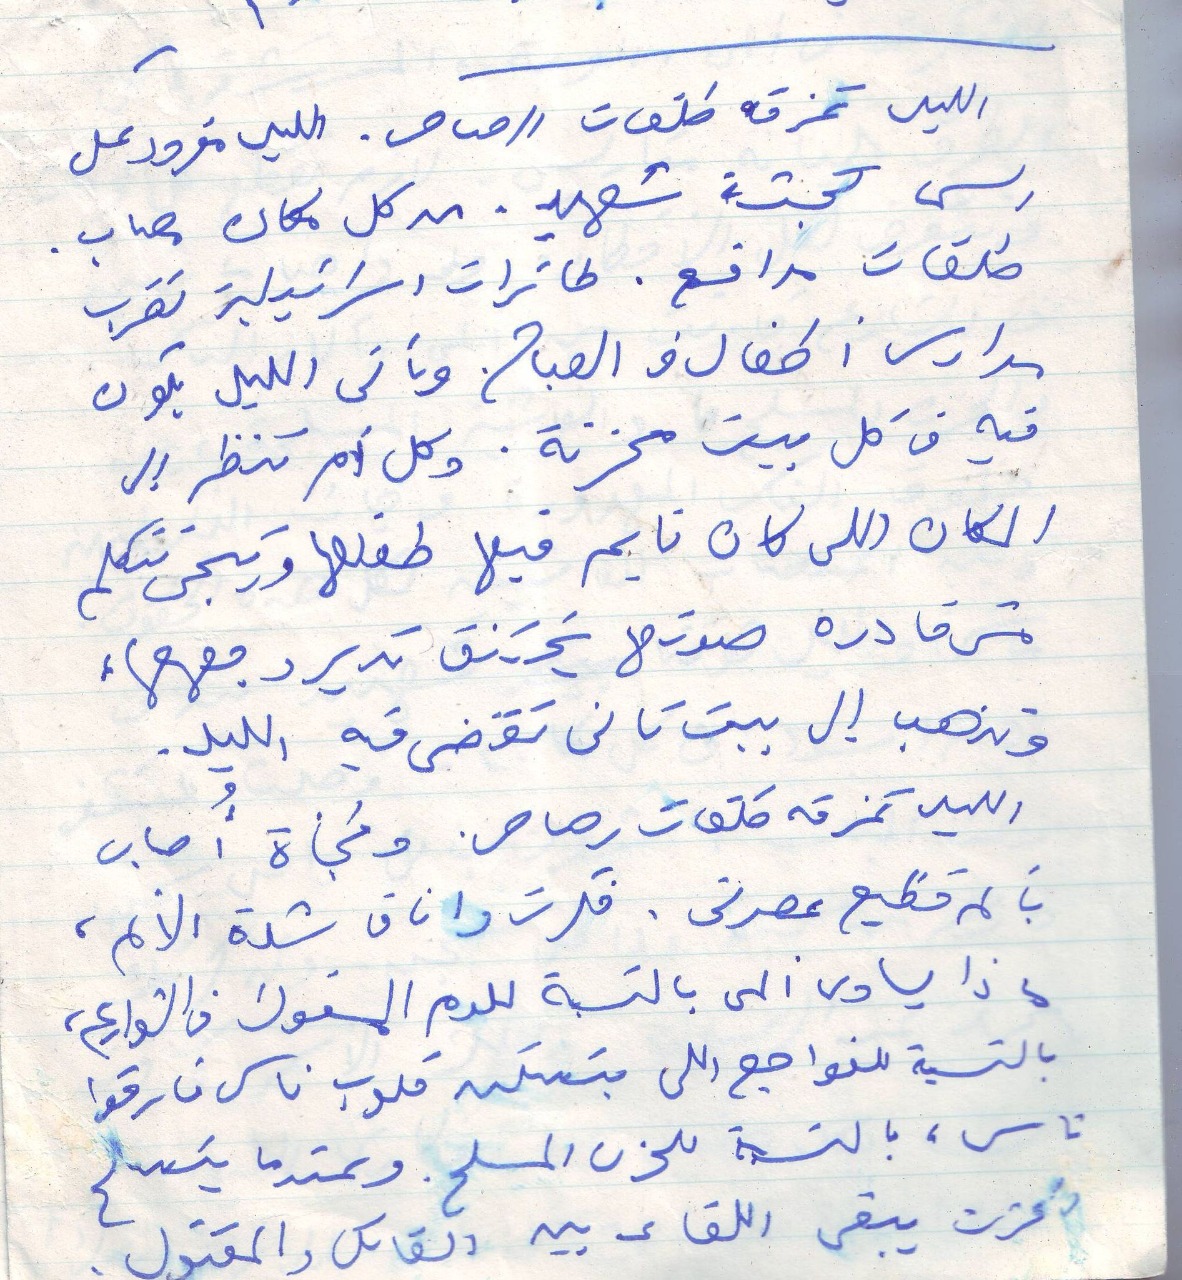 الليل تمزقه طلقات الرصاص. الليل مفرود على
راسى كجثة شهيد. من كل مكان مصاب.
طلقات مدافع. طائرات اسرائيلية تضرب
مدارس أطفال فى الصباح. ويأتى الليل يكون
فيه فى كل بيت محزنة. وكل أم تنظر إلى
المكان اللى كان نايم فيها طفلها وتيجى تتكلم
مش قادره صوتها يختنق تدير وجهها،
وتذهب إلى بيت تانى تقضى فيه الليل.
الليل تمزقه طلقات رصاص. وفجأة أُصاب
بألم فظيع عصرنى. فكرت وانا فى شدة الألم،
ماذا يساوى ألمى بالنسبة للدم المسفوك فى الشوارع،
بالنسبة للفواجع اللى بتسكن قلوب ناس فارقوا
ناس، بالنسبة للحزن المسلح. وعندما يتسلح
الحزن يبقى اللقاء بين القاتل والمقتول.